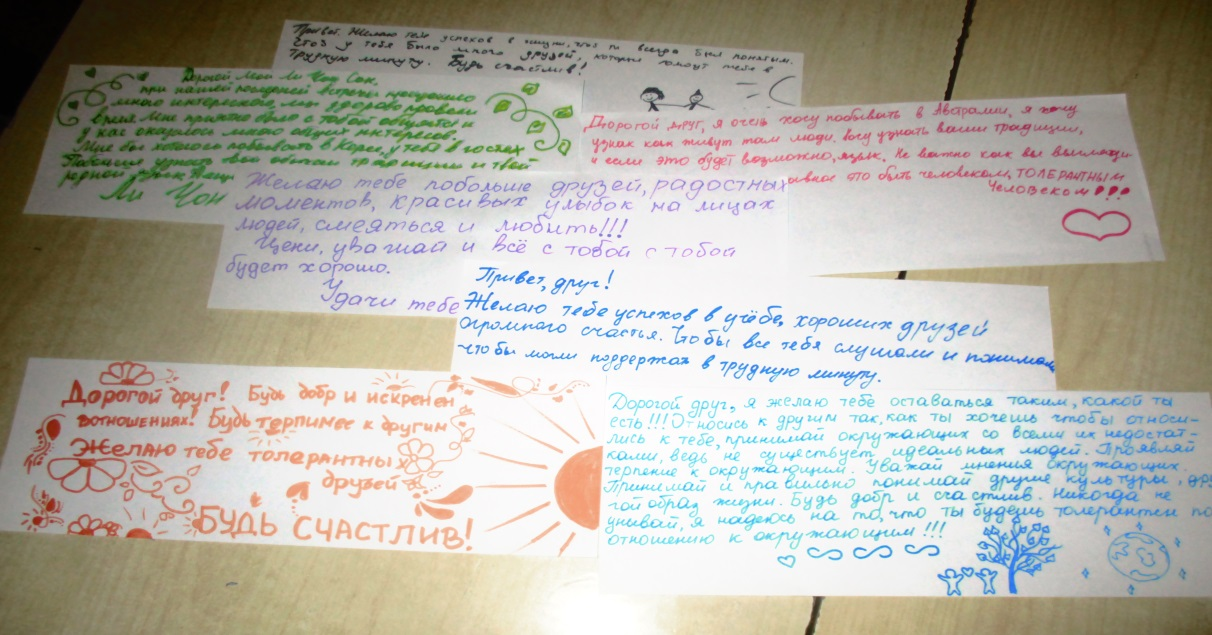 Привет. Желаю тебе успехов в жизни, чтоб ты всегда был понятым.
Чтоб у тебя было много друзей, которые помогут тебе в
трудную минуту. Будь счастлив!
Дорогой Мой Ли Чон Сок,
при нашей встречи произошло
много интересного, мы здорово провели
время. Мне приятно было с тобой общаться и
у нас оказалось много общих интересов.
Мне бы хотелось побывать в Корее, у тебя в гостях
узнать твои обычаи традиции и твой
родной язык
Ли Чон
Дорогой друг, я очень хочу побывать в Австралии, я хочу
узнать как живут там люди. Хочу узнать ваши традиции,
и если это будет возможно, язык. Не важно как вы выглядите
главное это быть человеком, ТОЛЕРАНТНЫМ
Человеком!!!
Желаю тебе побольше друзей, радостных
моментов, красивых улыбок на лицах
людей, смеяться и любить!!!
Цени, уважай и всё с тобой с тобой
будет хорошо.
Удачи тебе
Привет, друг!
Желаю тебе успехов в учёбе, хороших друзей
огромного счастья. Чтобы все тебя слушали и понимали,
чтобы могли поддержать в трудную минуту.
Дорогой друг! Будь добр и искренен
вотношениях! Будь терпимее к другим
Желаю тебе толерантных
друзей
БУДЬ СЧАСТЛИВ!
Дорогой друг, я желаю тебе оставаться таким, какой ты
есть!!! Относись к другим так, как ты хочешь чтобы относи-
лись к тебе, принимай окружающих со всеми их недостат-
ками, ведь не существует идеальных людей. Проявляй
терпение к окружающим. Уважай мнения окружающих.
Принимай и правильно понимай другие культуры, дру
гой образ жизни. Будь добр и счастлив. Никогда не
унывай, я надеюсь на то, что ты будешь толерантен по
отношению к окружающим!!!